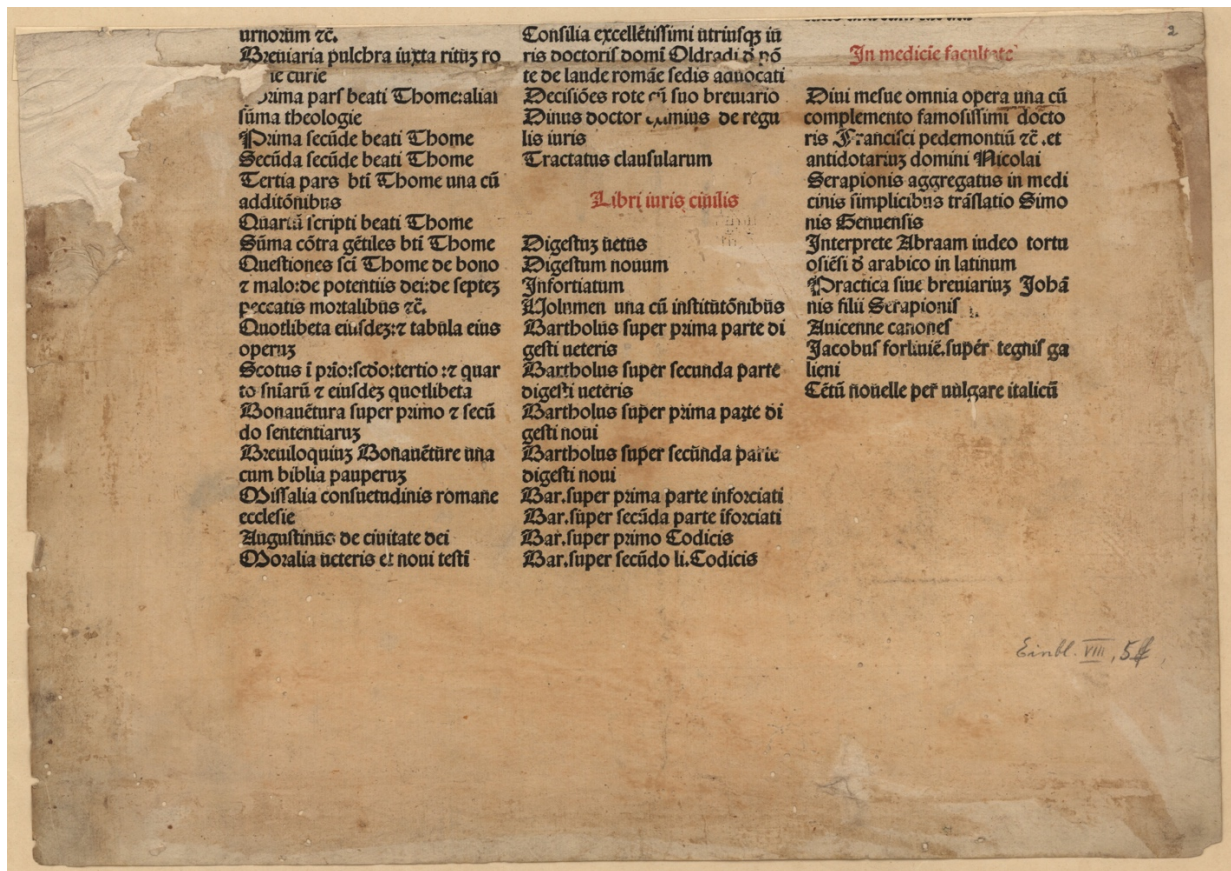 urnorum ⁊c̃.
Breuiaria pulchra iuxta ritūʒ ro
ie curie
prima pars beati Thome:alias
sūma theologie
Prima secūde beati Thome
Secūda secūde beati Thome
Tertia pars bti Thome una cū
additōnibus
Quarta scripti beati Thome
Sūma cōtra gētiles bti Thome
Questiones sci Thome de bono
⁊ malo:de potentiis dei:de septeʒ
peccatis mortalibus ⁊c̃.
Quotlibeta eiusdeʒ:⁊ tabula eius
operuʒ
Scotus ī prio:scdo:tertio:⁊ quar
to sniarū ⁊ eiusdeʒ quotlibeta
Bonauētura super primo ⁊ secū
do sententiaruʒ
Breuiloquiuʒ Bonauēture una
cum biblia pauperuʒ
Missalia consuetudinis romane
ecclesie
Augustinus de ciuitate dei
Moralia ueteris et noui testi
Consilia excellētissimi utriusqʒ iu
ris doctoris domi Oldradi d̄ pō
te de laude romāe sedis aduocati
Decisiōes rote cū suo breuiario
Dinus doctor eximius de regu
lis iuris
Tractatus clausularum
Libri iuris ciuilis
Digestuʒ uetus
Digestum nouum
Infortiatum
Uolumen una cū institutōnibus
Bartholus super prima parte di
gesti ueteris
Bartholus super secunda parte
digesti ueteris
Bartholus super prima parte di
gesti noui
Bartholus super secūnda parte
digesti noui
Bar.super prima parte inforciati
Bar.super secūda parte īforciati
Bar.super primo Codicis
Bar.super secūdo li.Codicis
2
In medicie facultate
Diui mesue omnia opera una cū
complemento famosissimi docto
ris Francisci pedemontiū ⁊c̃.et
antidotariuʒ domini Nicolai
Serapionis aggregatus in medi
cinis simplicibus trāslatio Simo
nis Genuensis
Interprete Abraam iudeo tortu
osiēsi d̄ arabico in latinum
Practica siue breuiariuʒ Johā
nis filii Serapionis
Auicenne canones
Jacobus forliuiē.super tegnis ga
lieni
Cētū nouelle per uulgare italicū
Einbl. VIII, 5